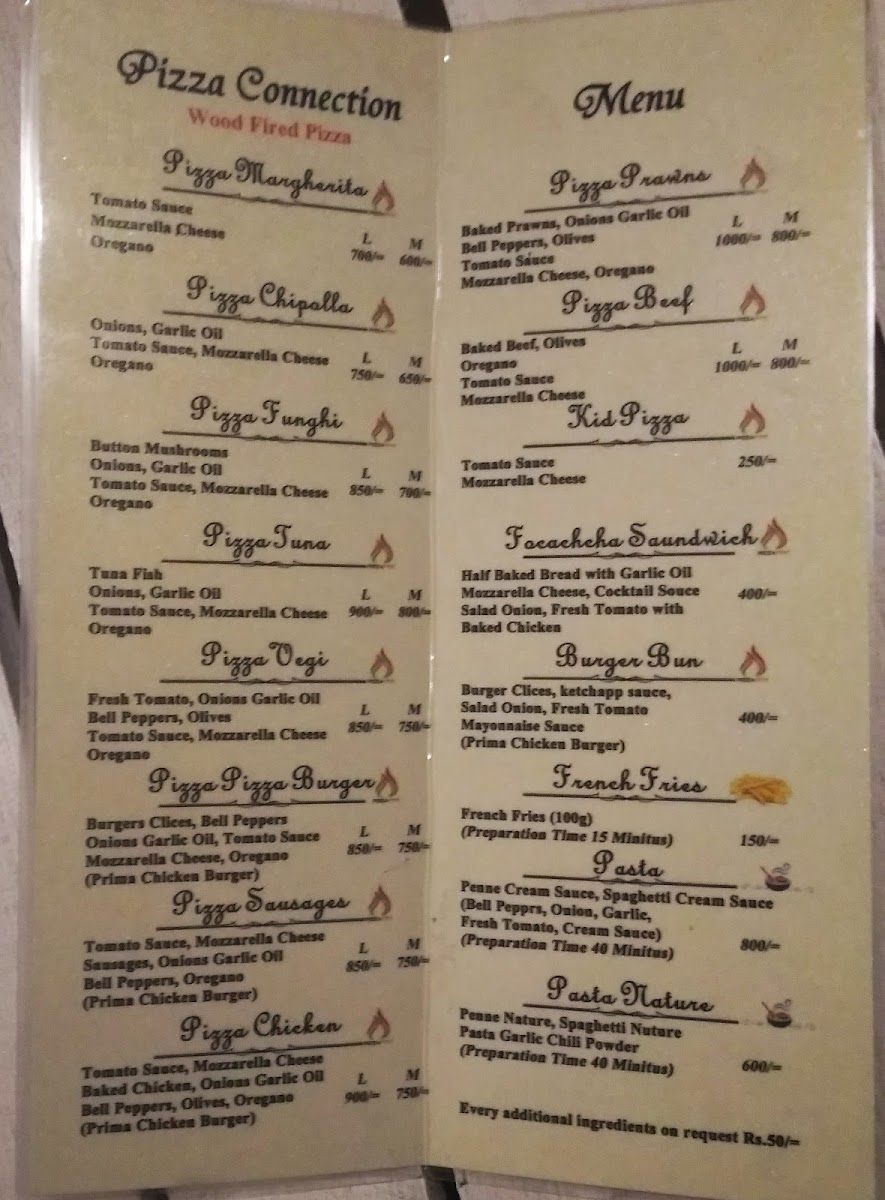 Pizza Connection
Wood Fired Pizza
Pizza Margherita
Tomato Sauce
Mozzarella Cheese
Oregano
L M
700/= 600/=
Pizza Chipolla
Onions, Garlic Oil
Tomato Sauce, Mozzarella Cheese
Oregano
L M
750/= 650/=
Pizza Funghi
Button Mushrooms
Onions, Garlic Oil
Tomato Sauce, Mozzarella Cheese
Oregano
L M
850/= 700/=
Pizza Tuna
Tuna Fish
Onions, Garlic Oil
Tomato Sauce, Mozzarella Cheese
Oregano
L M
900/= 800/=
Pizza Vegi
Fresh Tomato, Onions Garlic Oil
Bell Peppers, Olives
Tomato Sauce, Mozzarella Cheese
Oregano
L M
850/= 750/=
Pizza Pizza Burger
Burgers Clices, Bell Peppers
Onions Garlic Oil, Tomato Sauce
Mozzarella Cheese, Oregano
(Prima Chicken Burger)
L M
850/= 750/=
Pizza Sausages
Tomato Sauce, Mozzarella Cheese
Sausages, Onions Garlic Oil
Bell Peppers, Oregano
(Prima Chicken Burger)
L M
850/= 750/=
Pizza Chicken
Tomato Sauce, Mozzarella Cheese
Baked Chicken, Onions Garlic Oil
Bell Peppers, Olives, Oregano
(Prima Chicken Burger)
L M
900/= 750/=
Menu
Pizza Prawns
Baked Prawns, Onions Garlic Oil
Bell Peppers, Olives
Tomato Sauce
Mozzarella Cheese, Oregano
L M
1000/= 800/=
Pizza Beef
Baked Beef, Olives
Oregano
Tomato Sauce
Mozzarella Cheese
L M
1000/= 800/=
Kid Pizza
Tomato Sauce
Mozzarella Cheese
250/=
Focachcha Saundwich
Half Baked Bread with Garlic Oil
Mozzarella Cheese, Cocktail Souce
Salad Onion, Fresh Tomato with
Baked Chicken
400/=
Burger Bun
Burger Clices, ketchapp sauce,
Salad Onion, Fresh Tomato
Mayonnaise Sauce
(Prima Chicken Burger)
400/=
French Fries
French Fries (100g)
(Preparation Time 15 Minitus)
150/=
Pasta
Penne Cream Sauce, Spaghetti Cream Sauce
(Bell Pepprs, Onion, Garlic,
Fresh Tomato, Cream Sauce)
(Preparation Time 40 Minitus)
800/=
Pasta Nature
Penne Nature, Spaghetti Nuture
Pasta Garlic Chili Powder
(Preparation Time 40 Minitus)
600/=
Every additional ingredients on request Rs.50/=